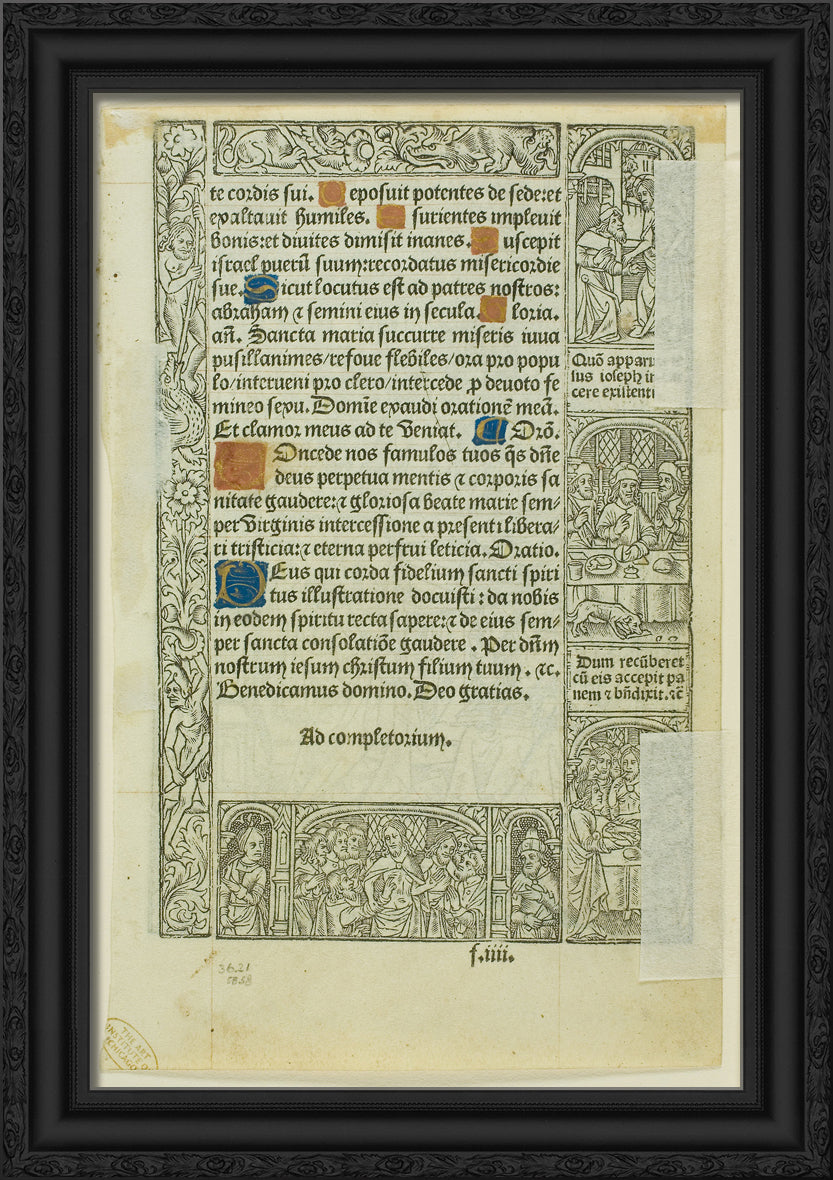 te cordis sui. D eposuit potentes de sede:et
exaltauit humiles. E surientes impleuit
bonis:et diuites dimisit inanes. S uscepit
israel puerū suum:recordatus misericordie
sue. Sicut locutus est ad patres nostros:
abraham ⁊ semini eius in secula. G loria.
añ. Sancta maria succurre miseris iuua
pusillanimes/refoue flebiles/ora pro popu
lo/interueni pro clero/intercede ꝓ deuoto fe
mineo sexu. Domīe exaudi orationē meā.
Et clamor meus ad te veniat. Orō.
Concede nos famulos tuos q̄s dn̄e
deus perpetua mentis ⁊ corporis sa
nitate gaudere:⁊ gloriosa beate marie sem-
per virginis intercessione a presenti libera-
ri tristicia:⁊ eterna perfrui leticia. Oratio.
DEus qui corda fidelium sancti spiri
tus illustratione docuisti: da nobis
in eodem spiritu recta sapere:⁊ de eius sem-
per sancta consolatiōe gaudere. Per dn̄m
nostrum iesum christum filium tuum. ⁊c.
Benedicamus domino. Deo gratias.
Ad completorium.
f.iiii.
Quō apparu
lus ioseph in
cere existenti
Dum recūberet
cū eis accepit pa
nem ⁊ bn̄dixit. ⁊c̄
36.21
THE ART
INSTITUTE OF
CHICAGO